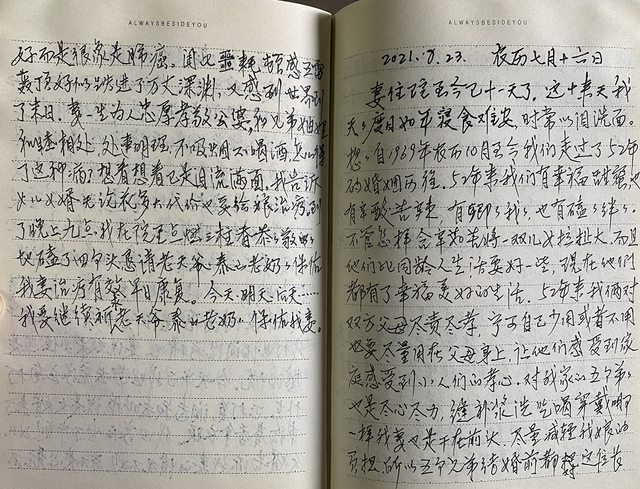 ALWAYSBESIDEYOU
好而是很象是肺癌。闻此噩耗顿感五雷
轰顶好似跌进了万丈深渊，又感到世界到
了末日。妻一生为人忠厚孝敬公婆，和兄弟姐妹
和睦相处，处事明理，不吸烟不喝酒，怎么得
了这种病？想着想着已是泪流满面。我告诉
女儿女婿无论花多大代价也要给娘治病。到
了晚上九点我在院里点燃三柱香恭恭敬敬
地磕了四个头恳请老天爷、泰山老奶奶保佑
我妻治疗有效早日康复。今天、明天、后天……
我要继续祈老天爷、泰山老奶奶保佑我妻。
ALWAYSBESIDEYOU
2021.8.23. 农历七月十六日
妻住院至今已十一天了。这十来天我
天天度日如年寝食难安，时常以泪洗面。
想：自1969年农历10月至今我们走过了52年
的婚姻历程。52年来我们有幸福甜蜜也
有辛酸苦辣，有卿卿我我，也有磕磕绊绊。
不管怎样含辛茹苦将一双儿女拉扯大，而且
他们比同龄人生活要好一些，现在他们
都有了幸福美好的生活。52年来我俩对
双方父母尽责尽孝，宁可自己少用或者不用
也要尽量用在父母身上，让他们感受到家
庭感受到儿人们的孝心。对我家的五个弟弟
也是尽心尽力，缝补浆洗吃喝穿戴哪
一样我妻也是干在前头，尽量减轻我娘的
负担，所以五个兄弟结婚前都